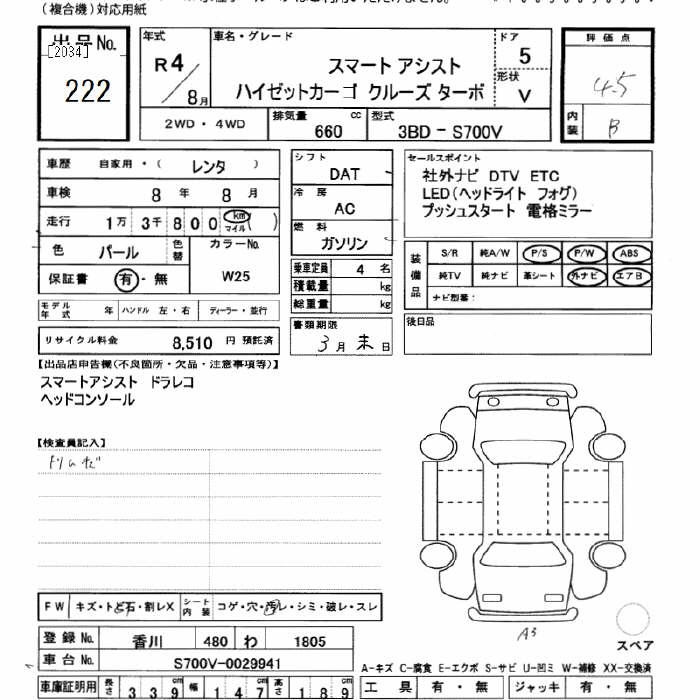 (複合機)対応用紙
出品No. 年式 車名・グレード ドア 評価点
[2034] R4 スマート アシスト 5 4.5
222 8月 ハイゼットカーゴ クルーズ ターボ 形状 V
2WD・4WD 排気量 660 cc 型式 3BD - S700V 内装 B
車歴 自家用・( レンタ ) シフト DAT セールスポイント
車検 8 年 8 月 冷房 AC 社外ナビ DTV ETC
走行 1万 3千 8 0 0 km マイル ( ) LED(ヘッドライト フォグ)
色 パール 色替 カラーNo. 燃料 ガソリン プッシュスタート 電格ミラー
保証書 有・無 W25 乗車定員 4 名 装備品 S/R 純A/W P/S P/W ABS
積載量 kg 純TV 純ナビ 革シート 外ナビ エアB
モデル年式 年 ハンドル 左・右 ディーラー・並行 総重量 kg ナビ型番:
リサイクル料金 8,510 円 預託済 書類期限 3月末日 後日品
【出品店申告欄(不良箇所・欠品・注意事項等)】
スマートアシスト ドラレコ
ヘッドコンソール
【検査員記入】
FW キズ・トビ石・割レX シート内装 コゲ・穴・汚レ・シミ・破レ・スレ
登録No. 香川 480 わ 1805 A3 スペア
車台No. S700V-0029941 A-キズ C-腐食 E-エクボ S-サビ U-凹ミ W-補修 XX-交換済
車庫証明用 長さ 3 3 9 cm 幅 1 4 7 cm 高さ 1 8 9 cm 工具 有・無 ジャッキ 有・無